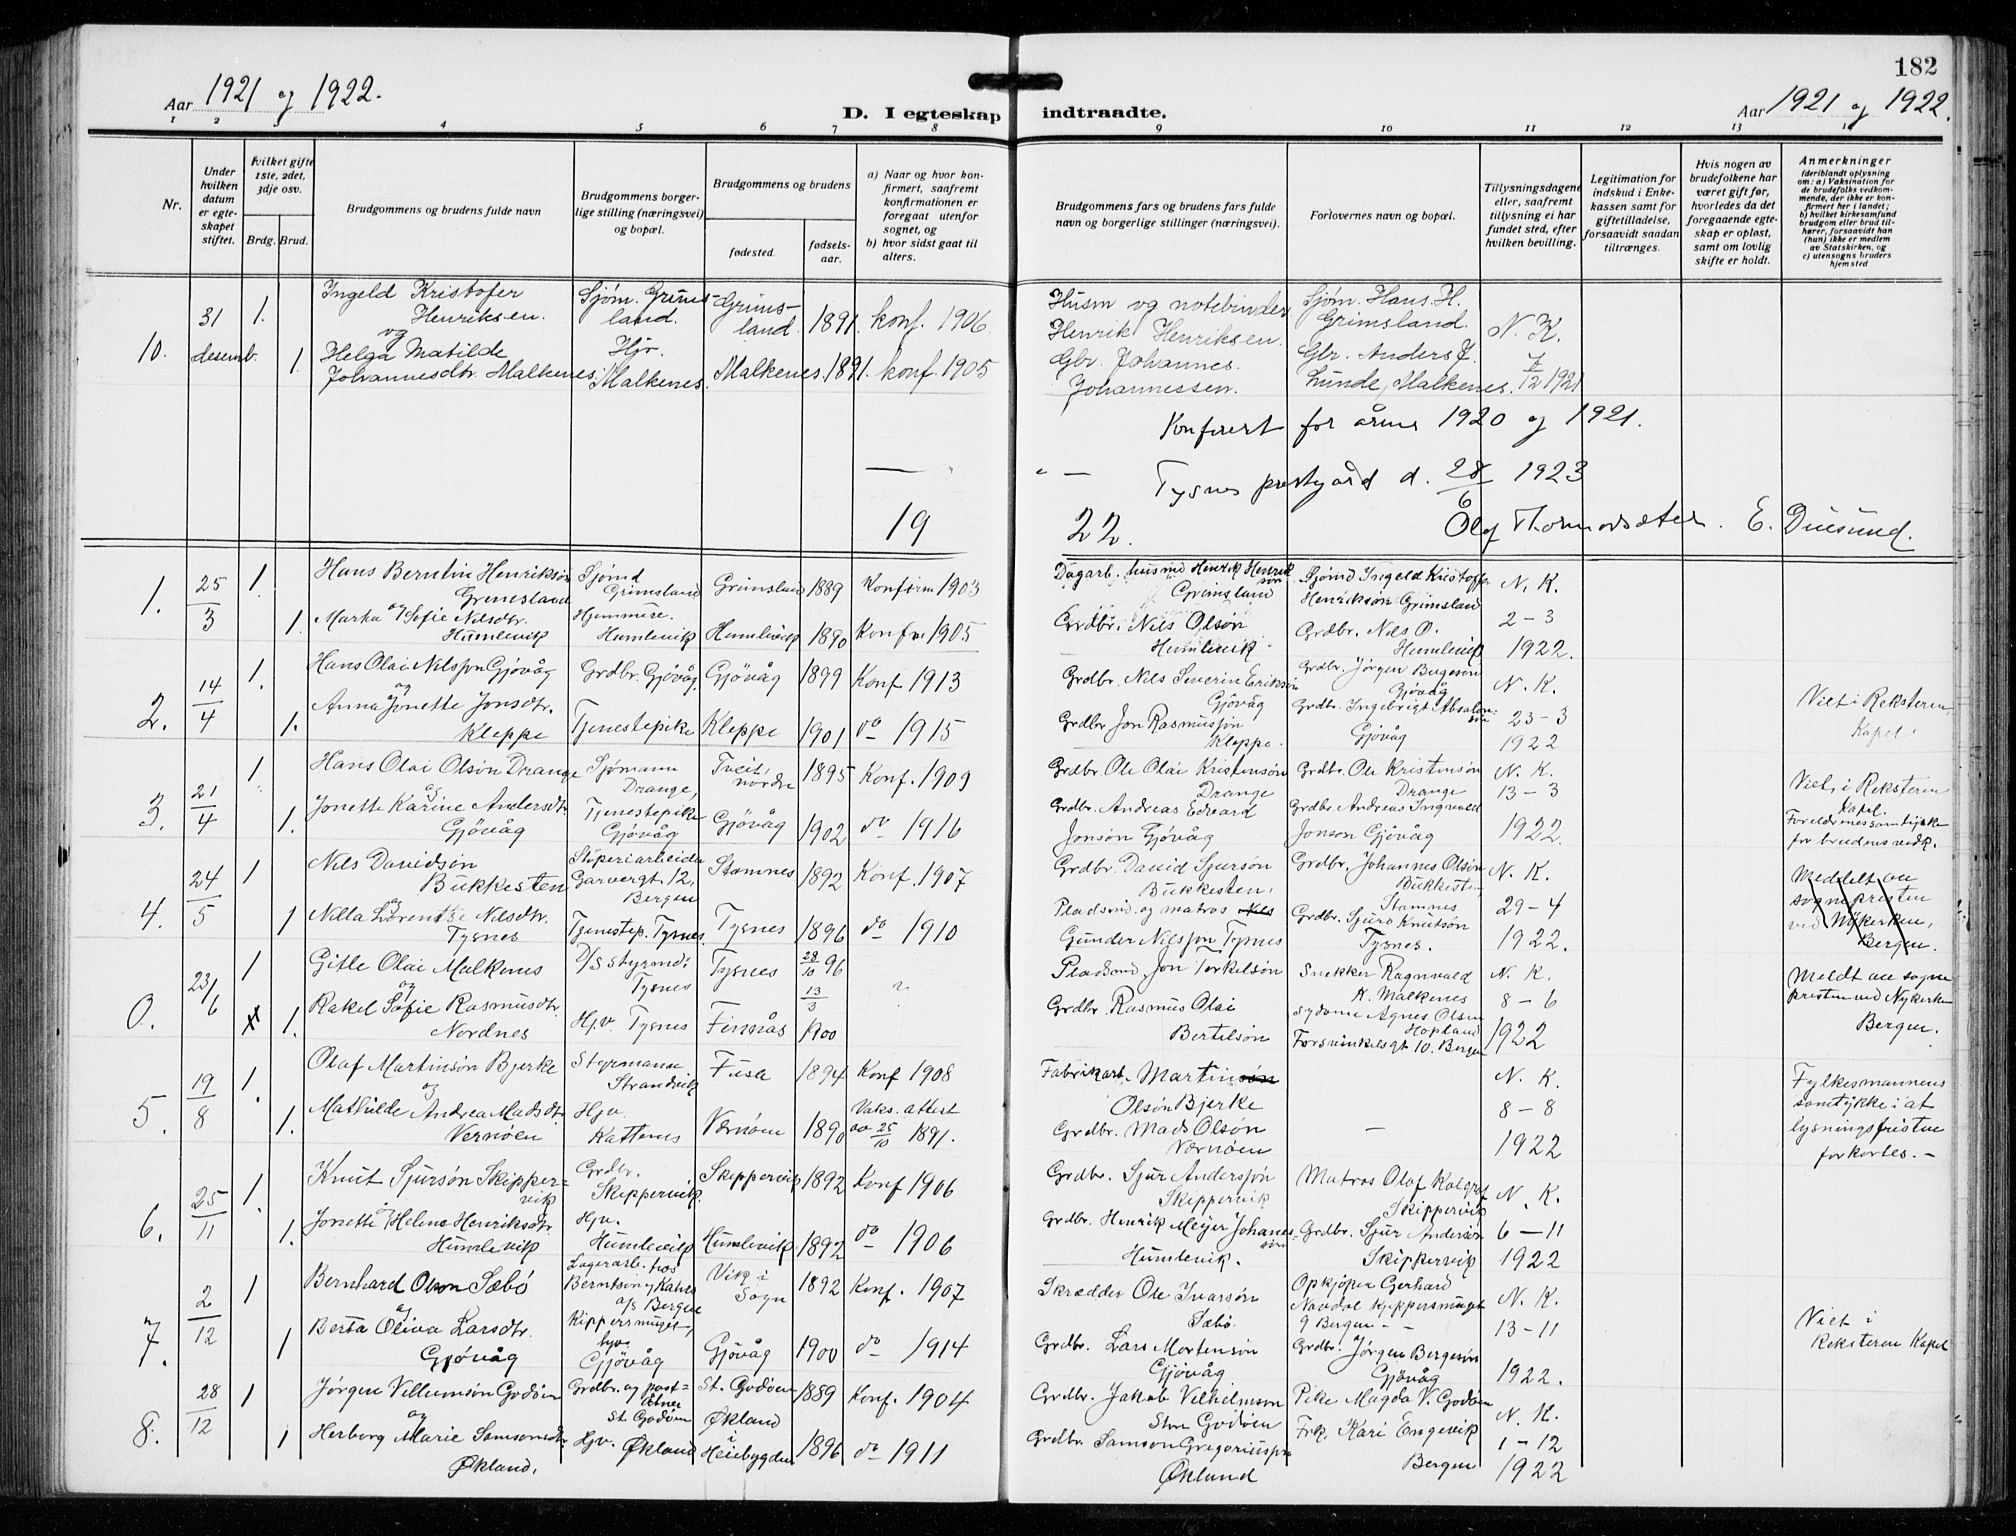 182
Aar 1921 og 1922.
D. I egteskap indtraadte.
Aar 1921 og 1922.
1 2 3 4 5 6 7 8 9 10 11 12 13
Nr.
Under hvilken datum er egteskapet stiftet.
Hvilket gifte 1ste, 2det, 3dje osv.
Brdg. Brud.
Brudgommens og brudens fulde navn
Brudgommens borgerlige stilling (næringsvei) og bopæl.
Brudgommens og brudens
fødested.
fødselsaar.
a) Naar og hvor konfirmert, saafremt konfirmationen er foregaat utenfor sognet, og
b) hvor sidst gaat til alters.
Brudgommens fars og brudens fars fulde navn og borgerlige stillinger (næringsvei).
Forlovernes navn og bopæl.
Tillysningsdagene eller, saafremt tillysning ei har fundet sted, efter hvilken bevilling.
Legitimation for indskud i Enkekassen samt for giftetilladelse, forsaavidt saadan tiltrænges.
Hvis nogen av brudefolkene har været gift før, hvorledes da det foregaaende egteskap er opløst, samt om lovlig skifte er holdt.
Anmerkninger
(deriblandt oplysning om: a) Vaksination for de brudefolks vedkommende, der ikke er konfirmert her i landet;
b) hvilket kirkesamfund brudgom eller brud tilhører, forsaavidt han (hun) ikke er medlem av Statskirken, og
c) utensogns bruders hjemsted
10. 31 desemb. 1. 1.
Ingeld Kristofer Henriksen. og
Helga Matilde Johannesdtr. Malkenes.
Sjøm. Grimsland.
Hjv. Malkenes.
Grimsland. 1891. konf. 1906
Malkenes. 1891. konf. 1905
Husm og notebinder Henrik Henriksen.
Gbr. Johannes Johannessen.
Sjøm. Hans H. Grimsland.
Gbr. Anders J. Lunde, Malkenes.
N. K. 7/12 1921
Konferert for årene 1920 og 1921.
Tysnes prestgård d. 28/6 1923
19
22.
Olaf Thormodsæter. E. Duesund.
1. 25/3 1. 1.
Hans Berntin Henriksøn Grimsland og
Marta Sofie Nilsdtr. Humlevik
Sjømd Grimsland
Hjemmevr. Humlevik
Grimsland 1889 Konfirm 1903
Humlevik 1890 Konf. 1905
Dagarb. husmd Henrik Henriksøn Grimsland
Grdbr. Nils Olsøn Humlevik
Sjømd Ingeld Kristoffer Henriksøn Grimsland
Grdbr. Nils O. Humlevik
N. K. 2-3 1922.
2. 14/4 1. 1.
Hans Olai Nilssøn Gjøvåg og
Anna Jonette Jonsdtr. Kleppe
Grdbr. Gjøvåg.
Tjenestepike
Gjøvåg 1899 Konf 1913
Kleppe 1901 do 1915
Grdbr. Nils Severin Eriksøn Gjøvåg
Grdbr Jon Rasmussøn Kleppe.
Grdbr. Jørgen Bergesøn Gjøvåg
Grdbr. Ingebrigt Absalonsøn Gjøvåg
N. K. 23-3 1922
Viet i Reksteren Kapel.
3. 21/4 1. 1.
Hans Olai Olsøn Drange og
Jonette Karine Andersdtr. Gjøvåg
Sjømann Drange,
Tjenestepike Gjøvåg
Tveit, nordre 1895 Konf. 1909
Gjøvåg 1902 do 1916
Grdbr. Ole Olai Kristensøn Drange
Grdbr. Andreas Edvard Jonsøn Gjøvåg
Grdbr. Ole Kristensøn Drange
Grdbr Andreas Ingvald Jonson Gjøvåg
N. K. 13-3 1922.
Viet, i Reksteren Kapel.
Foreldrenes samtykke for brudens vedk.
4. 24/5 1 1
Nils Davidsøn Bukkesten og
Nilla Lorentse Nilsdtr. Tysnes
Støperiarbeider Garvergt. 12, Bergen
Tjenestep. Tysnes.
Stamnes 1892 Konf. 1907
Tysnes 1896 do 1910
Grdbr. David Sjursøn Bukkesten,
Pladsmd. og matros Nils Gunder Nilssøn Tysnes
Grdbr. Johannes Olsøn Bukkesten Stamnes
Grdbr. Sjurd Knutsøn Tysnes.
N. K. 29-4 1922.
Meddelt av sognepresten ved Nykerken, Bergen.
0. 23/6 1 1.
Gitle Olai Malkenes og
Rakel Sofie Rasmusdtr. Nordnes
D/S styrmd. Tysnes
Hjv. Tysnes
Tysnes 28/10 96
Finnås 13/3 1900
?
Pladsmd. Jon Torkelsøn
Grdbr. Rasmus Olai Bertelsøn
Snekker Ragnvald K. Malkenes
Sydame Agnes Olsen Hopland Forsvinkelsgt 10. Bergen
N. K. 8-6 1922
Meldt av sognepresten ved Nykerken Bergen.
5. 19/8 1. 1.
Olaf Martinsøn Bjerke og
Mathilde Andrea Madsdtr. Vernøen
Styrmann Strandvik
Hjv. Katternes
Fusa 1894 Konf 1908
Værnøen 1890 Vaks. attest 25/10 1891.
Fabrikarb. Martinsøn Olsøn Bjerke
Grdbr. Mads Olsøn Værnøen
—
N. K. 8-8 1922
Fylkesmannens samtykke i at lysningsfristen forkortes. —
6. 25/11 1. 1.
Knut Sjursøn Skippervik og
Jonette Helene Henriksdtr. Humlevik
Grdbr. Skippervik
Hjv. Humlevik
Skippervik 1892 Konf 1906
Humlevik 1892 do 1906
Grdbr. Sjur Anderssøn Skippervik
Grdbr. Henrik Meyer Johanessøn Humlevik.
Matros Olaf Kolgrof Skippervik
Grdbr. Sjur Andersøn Skippervik
N. K. 6-11 1922
7. 2/12 1 1
Bernhard Olson Sæbö og
Berta Oliva Larsdtr. Gjøvåg
Lagerarb. hos Berntsen, Kahrs a/s Bergen Kippersmuget,
hjv. Gjøvåg
Vik i Sogn 1892 Konf. 1907
Gjøvåg 1900 do 1914
Skrædder Ole Ivarsøn Sæbø.
Grdbr. Lars Mortensøn Gjøvåg
Opkjøper Gerhard Navdal Kippersmuget 9 Bergen og
Grdbr. Jørgen Bergesøn Gjøvåg
N. K. 13-11 1922.
Viet i Reksteren Kapel
8. 28/12 1 1
Jørgen Villumsøn Godøen og
Herborg Marie Samsonsdtr. Økland,
Grdbr. og poståbner St. Godøen
Hjv. Økland
St. Godøen 1889 Konf. 1904
Økland i Heiebygden 1896 do 1911
Grdbr. Jakob Vilhelmson Store Godøen
Grdbr. Samson Gregoriussøn Økland
Pike Magda V. Godøen
Frk. Kari Engevik Bergen
N. K. 1-12 1922